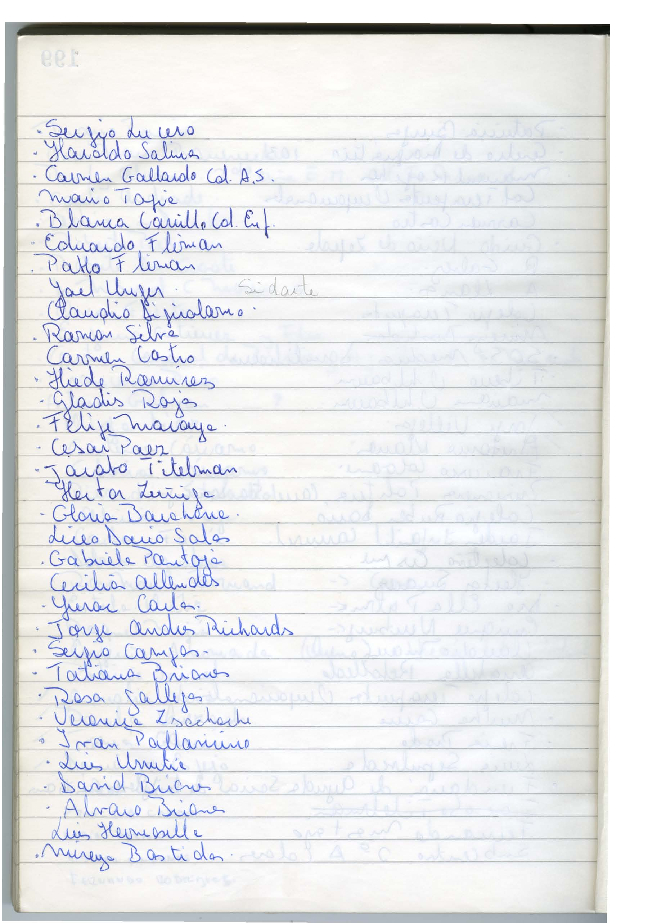 · Sergio Lucero
· Haroldo Salinas
· Carmen Gallardo Col. A.S.
Mario Tapia
· Blanca Carrillo Col. Enf.
· Eduardo Fliman
· Pablo Fliman
Yael Unger · Sidarte
Claudio
· Ramon Silva
Carmen Castro
· Hiede Ramirez
· Gladis Rojas
· Felipe
· Cesar Paez
· Jacobo Titelman
Hector Zuñiga
· Gloria
Liceo Dario Salas
· Gabriela Pantoja
Cecilia Allendes
· Carlos.
· Jorge Andres Richards
· Sergio
· Tatiana Briones
· Rosa Gallegos
· Veronica
· Ivan
· Luis Urrutia
· David Briones
· Alvaro Briones
Luis Hermosilla
· Mireya Bastidas ·